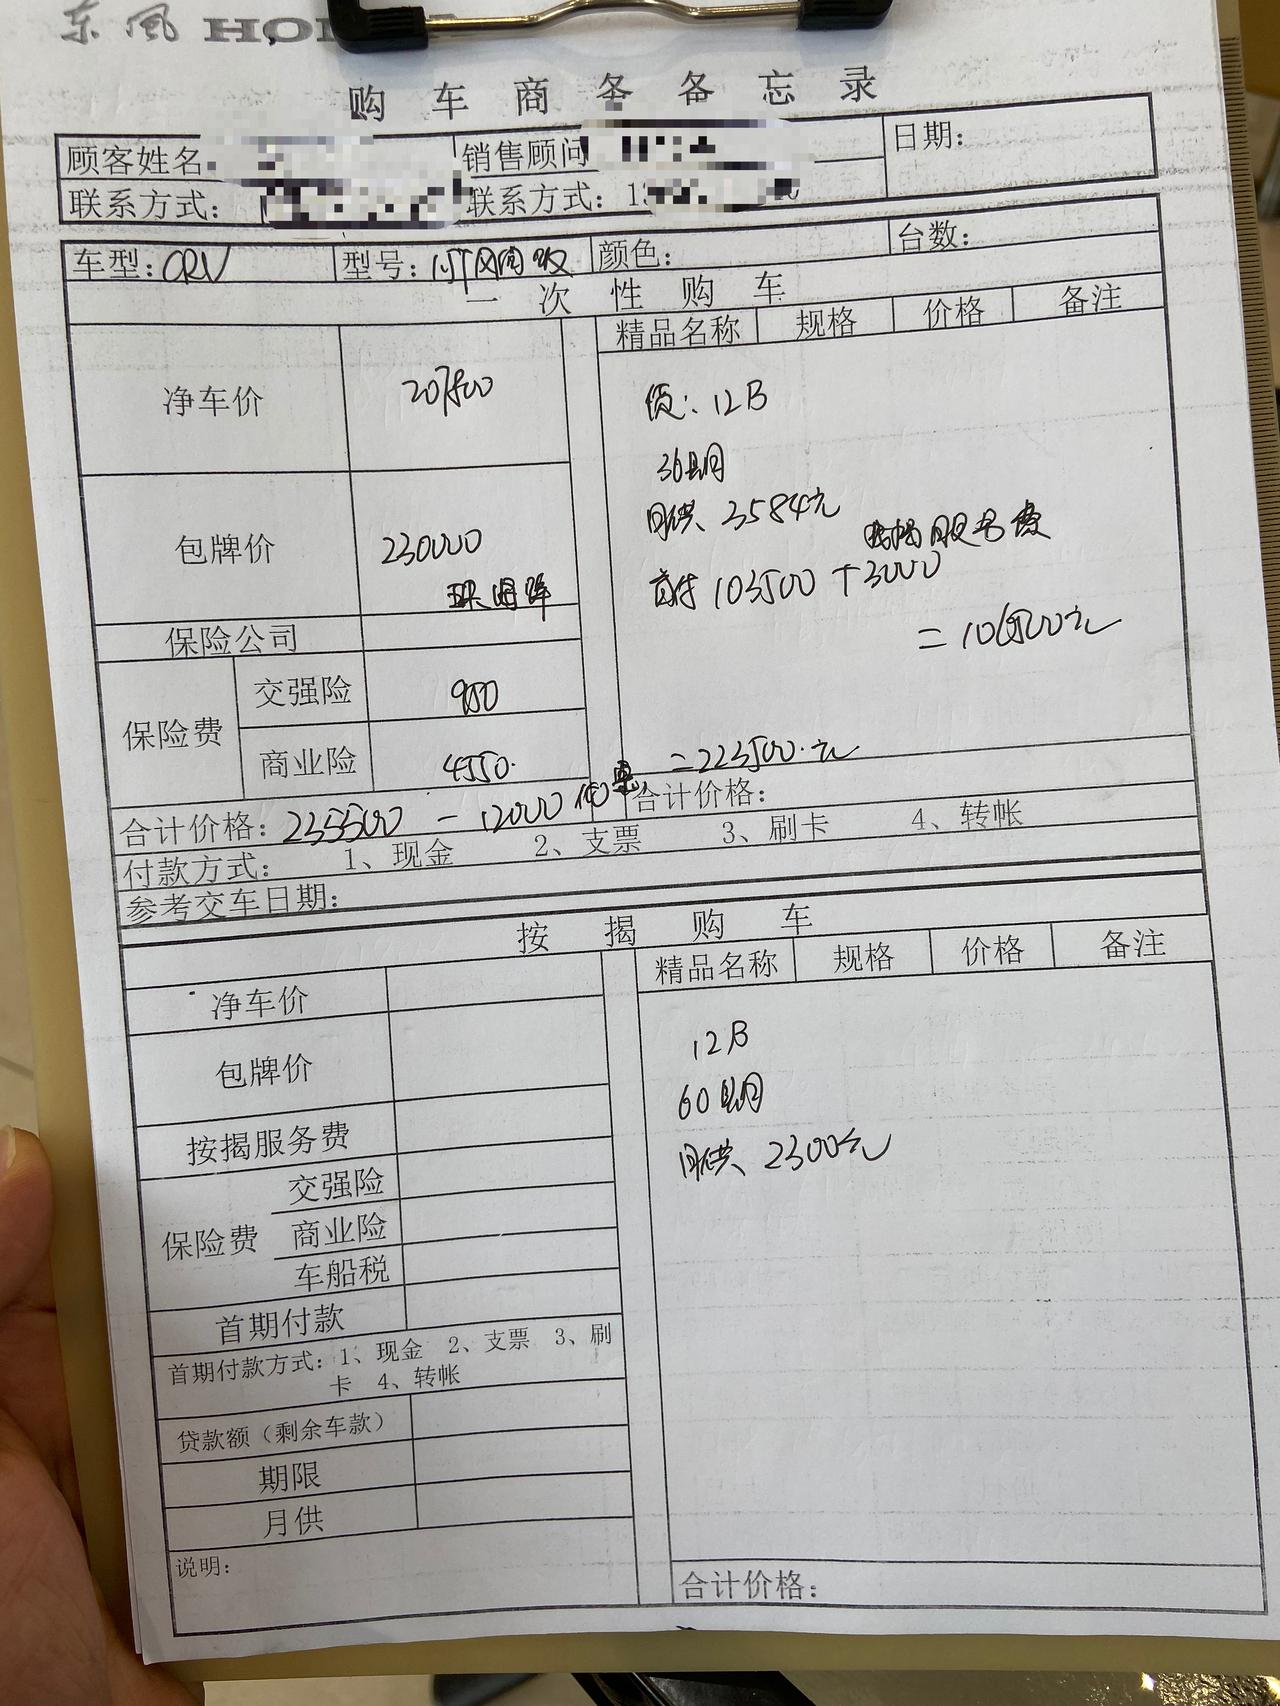 东风 HON
购车商务备忘录
顾客姓名 销售顾问 日期：
联系方式： 联系方式：
车型：CRV 型号： 颜色： 台数：
一次性购车
精品名称 规格 价格 备注
净车价 207500
贷：12B
36期
月供、3584元
包牌价 230000
服务费
首付 103500 + 3000
= 106500元
保险公司
保险费 交强险 950
商业险 4550.
= 223500.元
合计价格：235500 - 12000 合计价格：
付款方式： 1、现金 2、支票 3、刷卡 4、转帐
参考交车日期：
按揭购车
精品名称 规格 价格 备注
净车价
12B
包牌价
60期
按揭服务费
月供、2300元
保险费 交强险
商业险
车船税
首期付款
首期付款方式：1、现金 2、支票 3、刷
卡 4、转帐
贷款额（剩余车款）
期限
月供
说明：
合计价格：